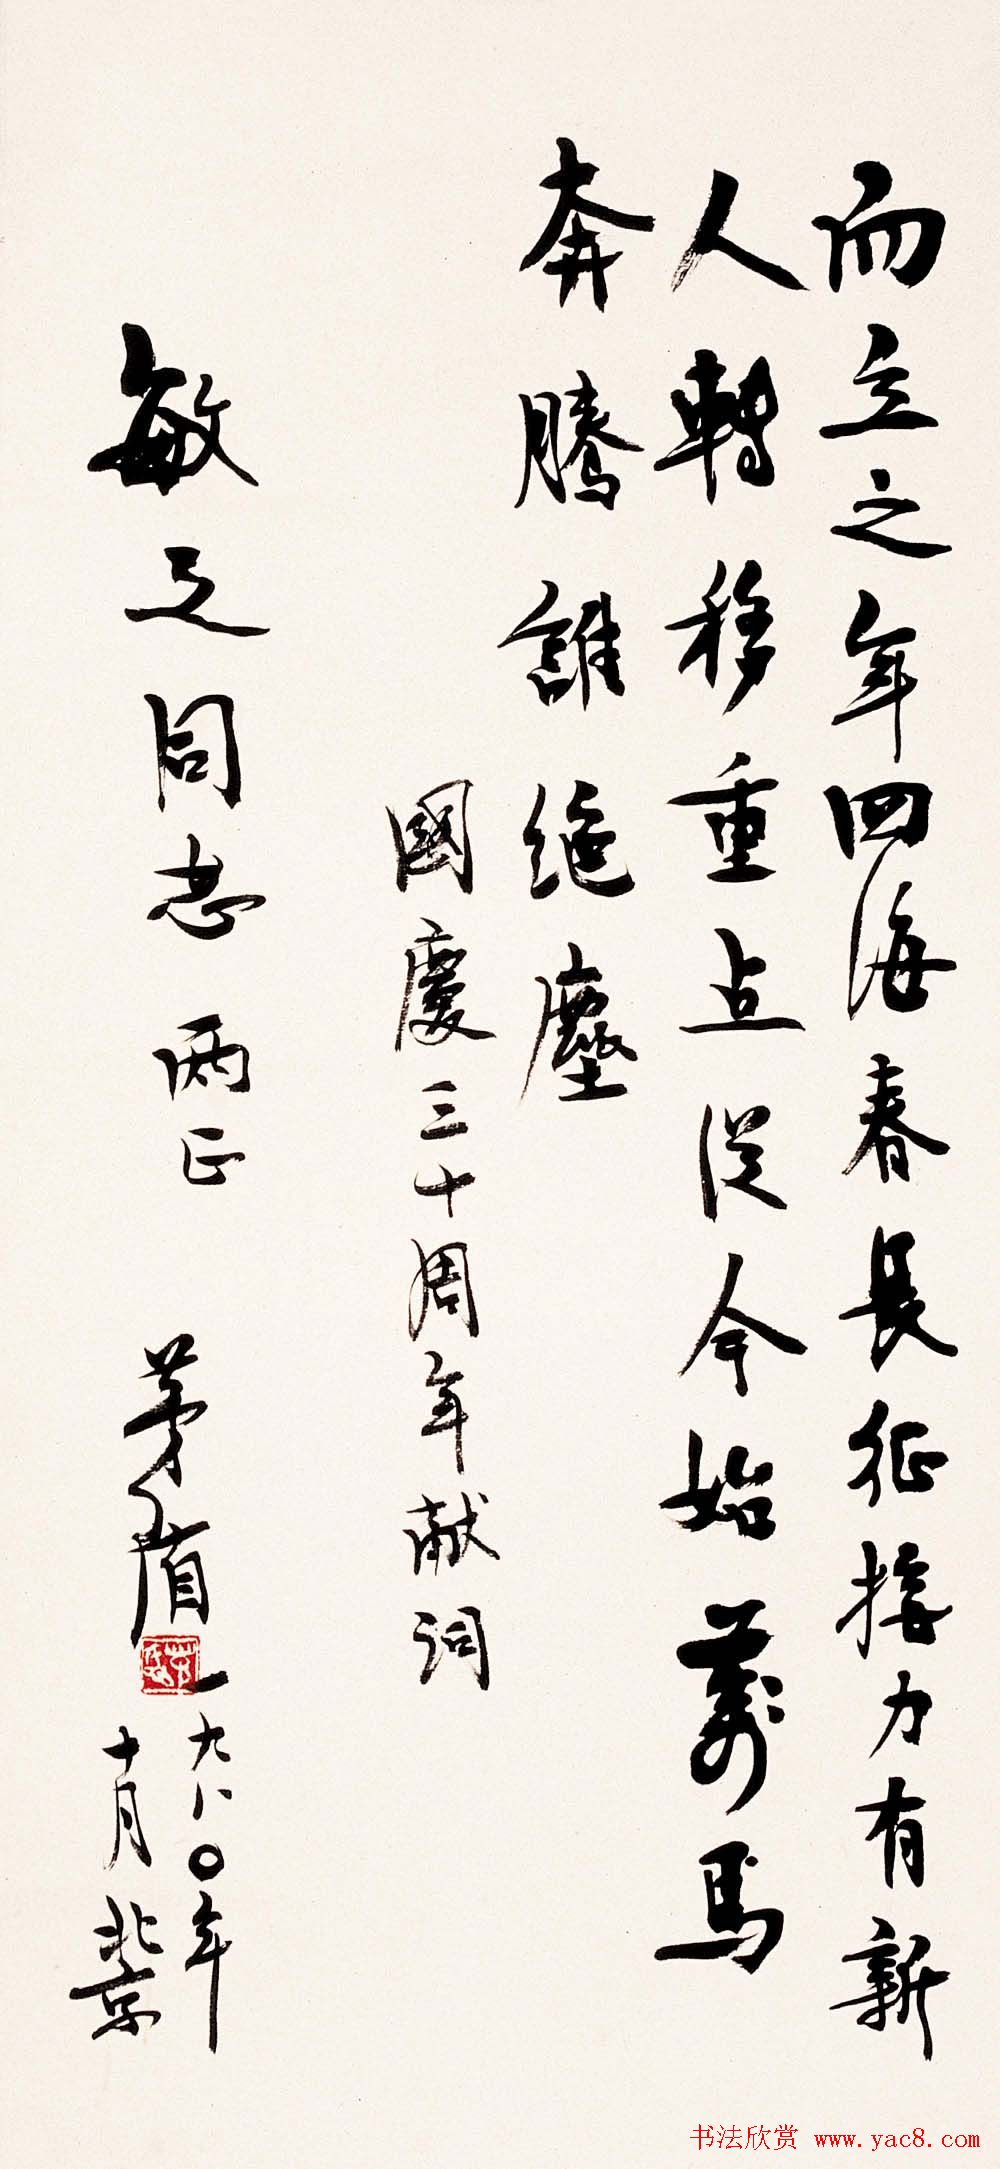 而立之年四海春長征接力有新
人轉移重点從今始萬馬
奔騰誰絶塵
國慶三十周年献詞
敏之同志 两正
茅盾 一九八〇年
十月北京
书法欣赏 www.yac8.com